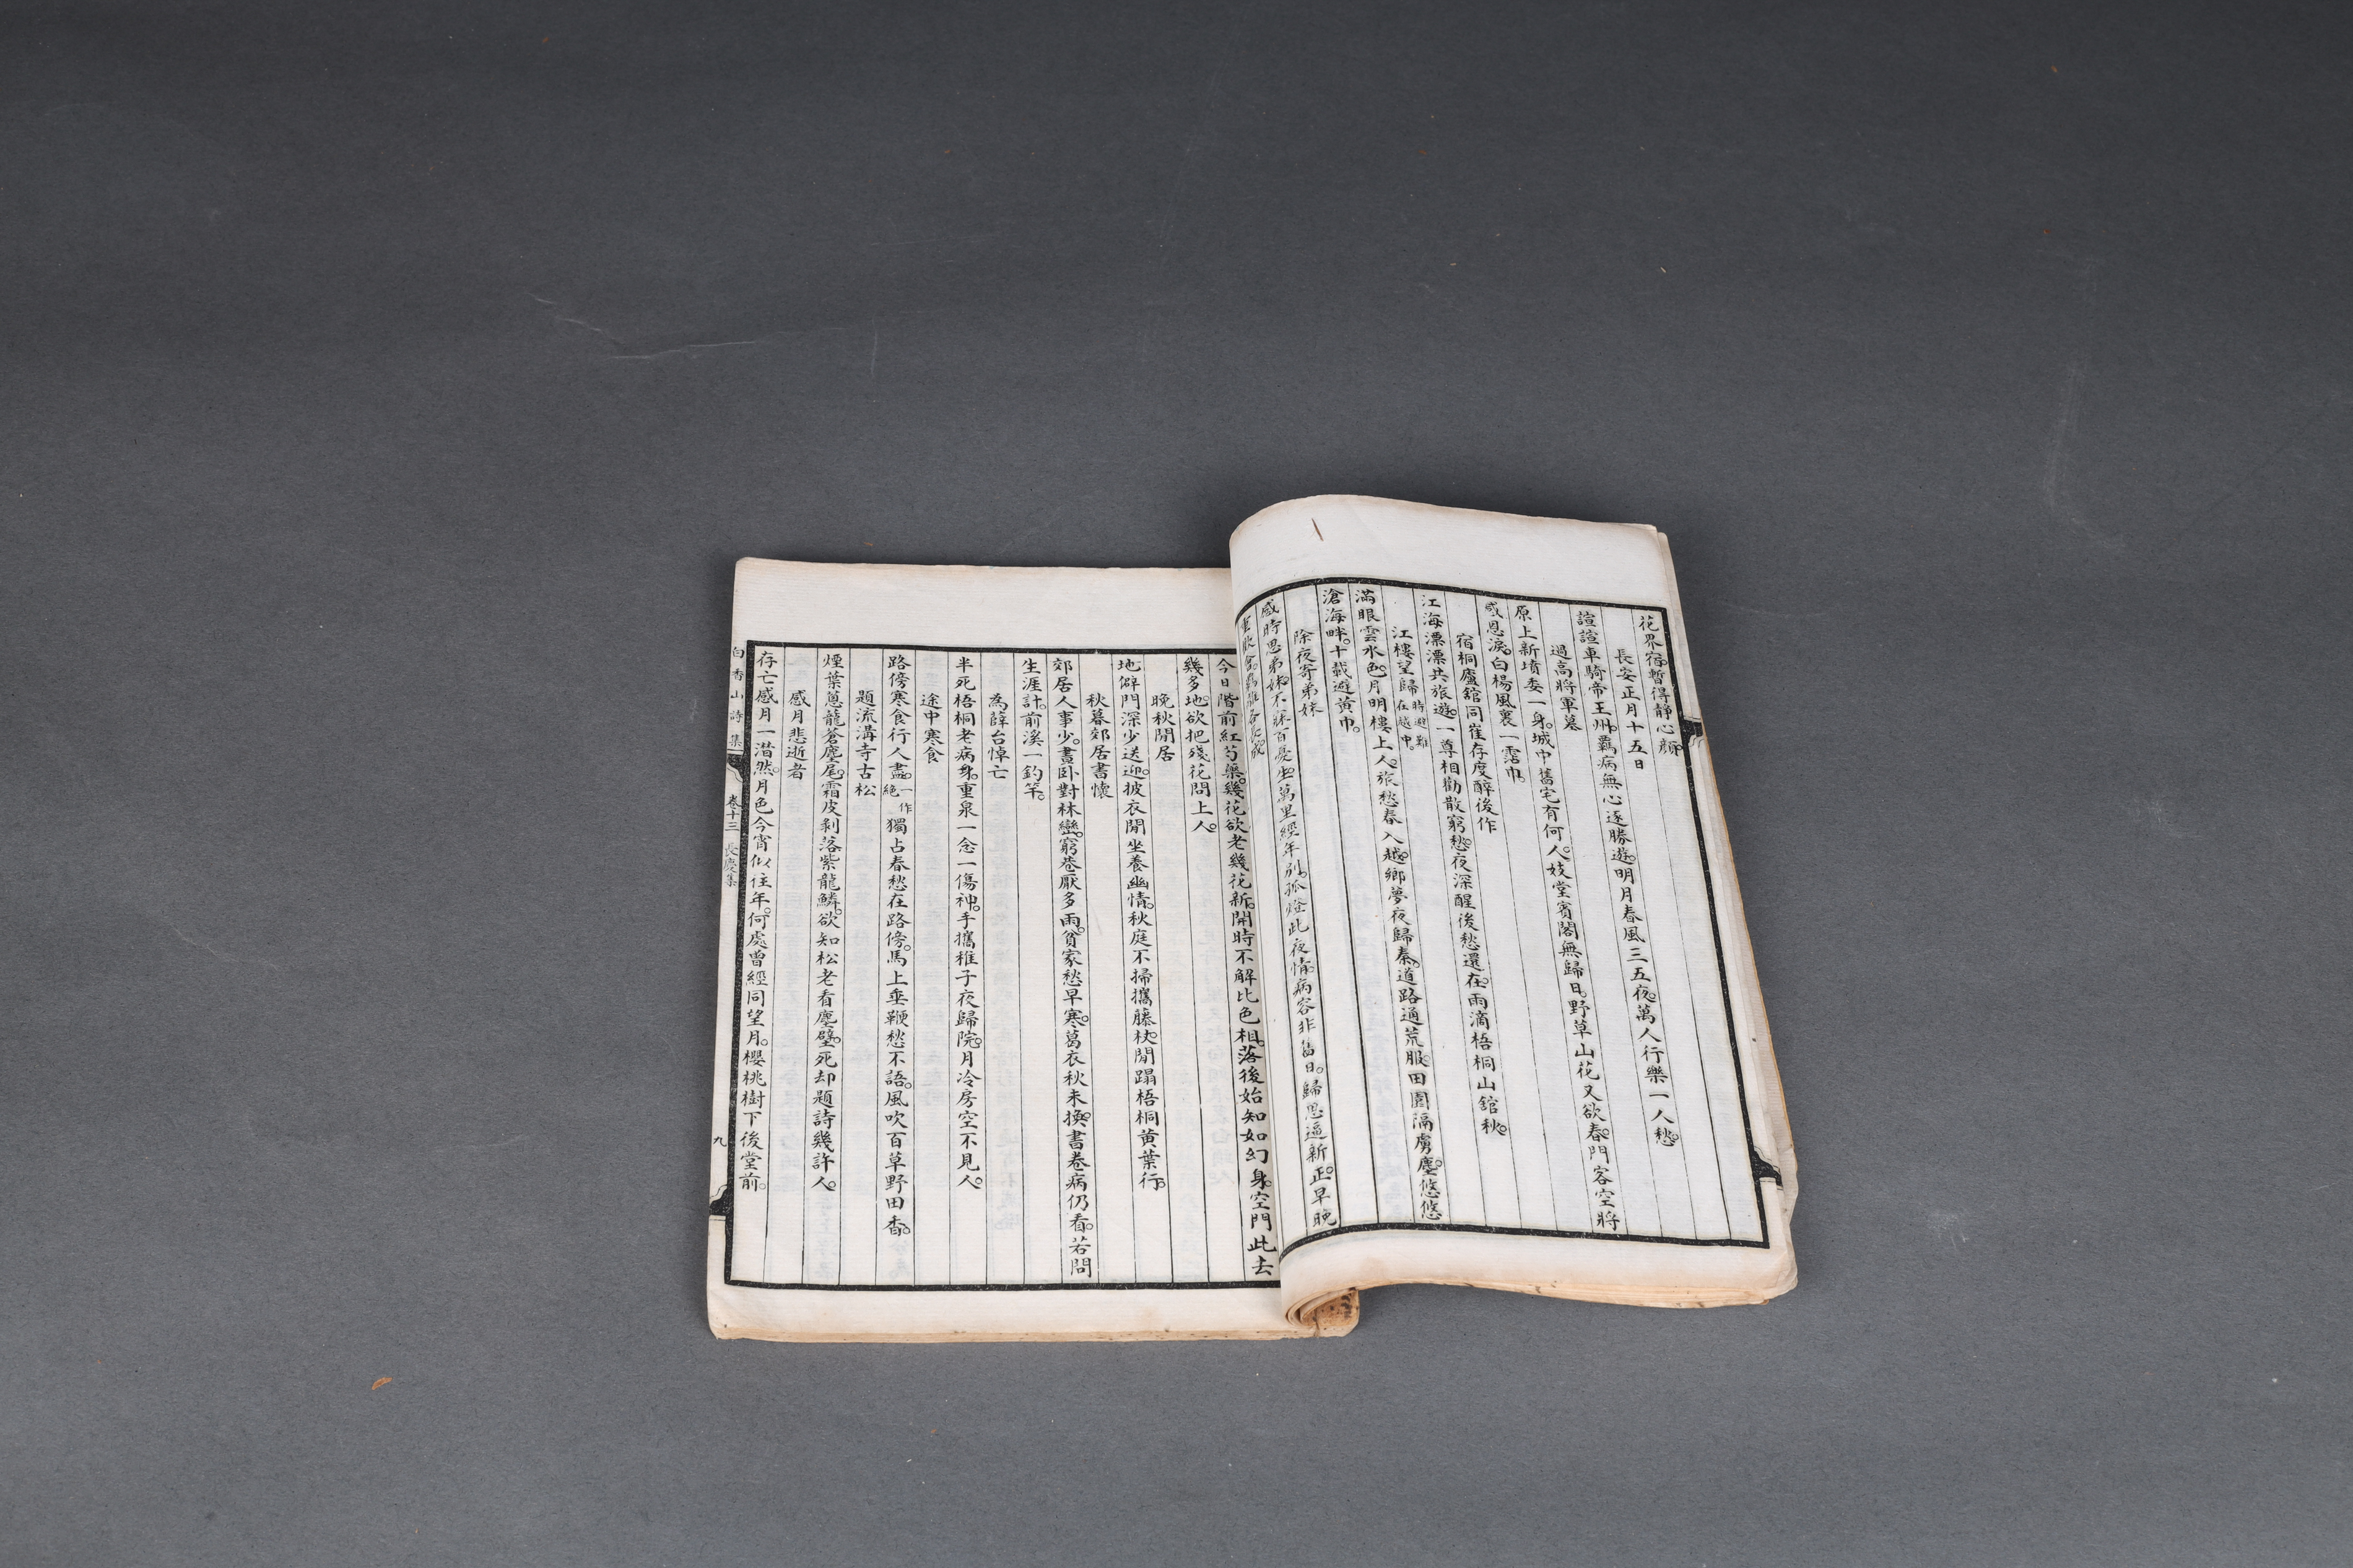 花界宿。暫得靜心顏。
長安正月十五日
諠諠車騎帝王州。羇病無心逐勝遊。明月春風三五夜。萬人行樂一人愁。
過高將軍墓
原上新墳委一身。城中舊宅有何人。妓堂賓閣無歸日。野草山花又欲春。門客空將
感恩淚。白楊風裏一霑巾。
宿桐廬館同崔存度醉後作
江海漂漂共旅遊。一尊相勸散窮愁。夜深醒後愁還在。雨滴梧桐山館秋。
江樓望歸 時避難在越中。
滿眼雲水色。月明樓上人。旅愁春入越。鄉夢夜歸秦。道路通荒服。田園隔虜塵。悠悠
滄海畔。十載避黃巾。
除夜寄弟妹
感時思弟妹。不寐百憂生。萬里經年別。孤燈此夜情。病容非舊日。歸思逼新正。早晚
重歡會。羇離各長成
今日階前紅芍藥。幾花欲老幾花新。開時不解比色相。落後始知如幻身。空門此去
幾多地。欲把殘花問上人。
晚秋閒居
地僻門深少送迎。披衣閒坐養幽情。秋庭不掃攜藤杖。閒蹋梧桐黃葉行。
秋暮郊居書懷
郊居人事少。晝臥對林巒。窮巷厭多雨。貧家愁早寒。葛衣秋未換。書卷病仍看。若問
生涯計。前溪一釣竿。
為薛台悼亡
半死梧桐老病身。重泉一念一傷神。手攜稚子夜歸院。月冷房空不見人。
途中寒食
路傍寒食行人盡。一作絕 獨占春愁在路傍。馬上垂鞭愁不語。風吹百草野田香。
題流溝寺古松
煙葉蔥蘢蒼麈尾。霜皮剝落紫龍鱗。欲知松老看塵壁。死却題詩幾許人。
感月悲逝者
存亡感月一潸然。月色今宵似往年。何處曾經同望月。櫻桃樹下後堂前。
白香山詩集 卷十三 長慶集 九